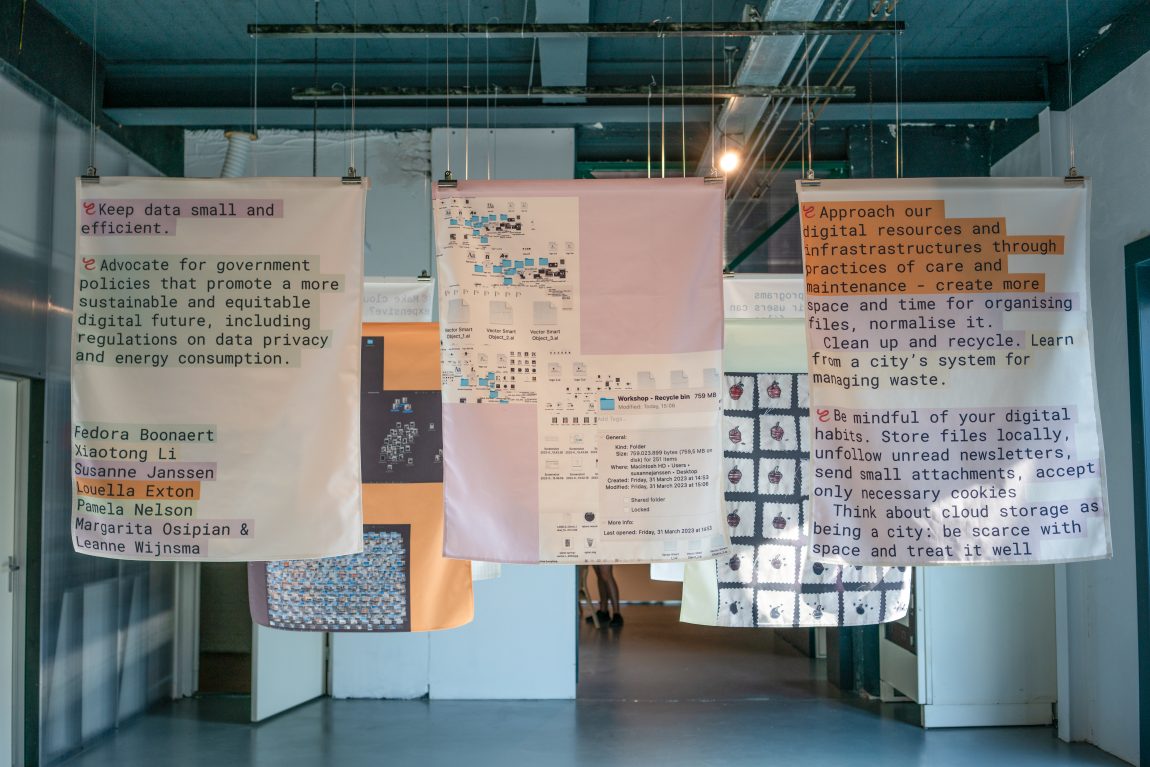 Keep data small and
efficient.
Advocate for government
policies that promote a more
sustainable and equitable
digital future, including
regulations on data privacy
and energy consumption.
Fedora Boonaert
Xiaotong Li
Susanne Janssen
Louella Exton
Pamela Nelson
Margarita Osipian &
Leanne Wijnsma
Make clou
expensive?
Vector Smart
Object_1.ai
Vector Smart
Object_2.ai
Vector Smart
Object_3.ai
Workshop - Recycle bin 759 MB
Modified: Today, 15:06
Add Tags...
General:
Kind: Folder
Size: 759.023.899 bytes (759,5 MB on
disk) for 251 items
Where: Macintosh HD • Users •
susannejanssen • Desktop
Created: Friday, 31 March 2023 at 14:53
Modified: Friday, 31 March 2023 at 15:06
Shared folder
Locked
More Info:
Last opened: Friday, 31 March 2023 at 14:53
programs
ir users can
Approach our
digital resources and
infrastrastructures through
practices of care and
maintenance - create more
space and time for organising
files, normalise it.
Clean up and recycle. Learn
from a city's system for
managing waste.
Be mindful of your digital
habits. Store files locally,
unfollow unread newsletters,
send small attachments, accept
only necessary cookies
Think about cloud storage as
being a city: be scarce with
space and treat it well